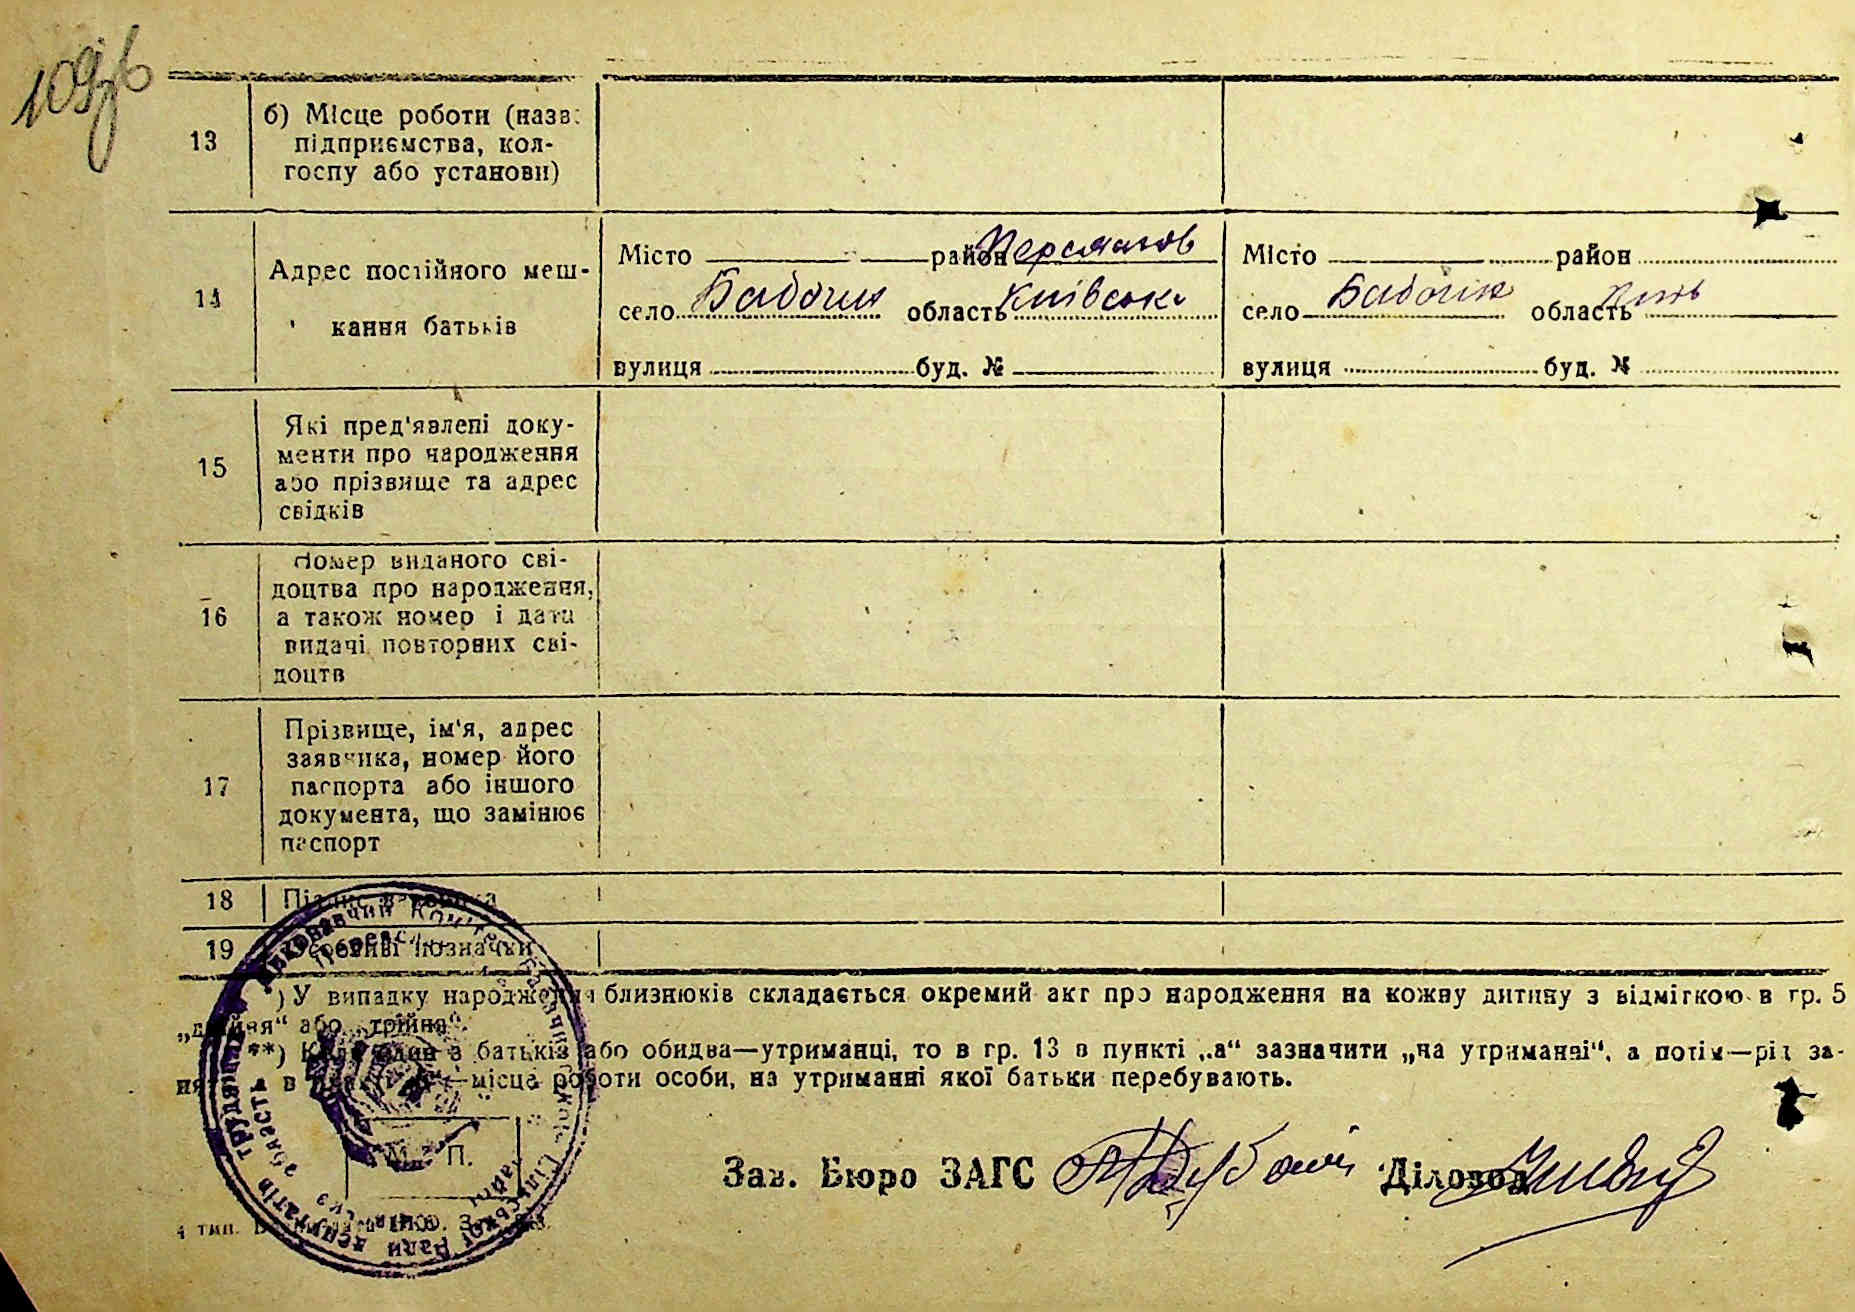 109зв
13
б) Місце роботи (назв:
підприємства, кол-
госпу або установи)
14
Адрес постійного меш-
кання батьків
Місто район
село Бабачиха область Київська
вулиця буд. №
Місто район
село область
вулиця буд. №
15
Які пред'явлені доку-
менти про народження
або прізвище та адрес
свідків
16
Номер виданого сві-
доцтва про народження,
а також номер і дата
видачі повторних сві-
доцтв
17
Прізвище, ім'я, адрес
заявника, номер його
паспорта або іншого
документа, що замінює
паспорт
18
Підпис заявника
19
Особливі позначки
) У випадку народження близнюків складається окремий акт про народження на кожну дитину з відміткою в гр. 5
„двійня“ або „трійня“.
**) Коли один з батьків або обидва—утриманці, то в гр. 13 в пункті „а“ зазначити „на утриманні“, а потім—рід за-
в місце роботи особи, на утриманні якої батьки перебувають.
М. П.
Зав. Бюро ЗАГС
Діловод
4 тип.
Виконавчий Комітет
Сільської Ради депутатів трудящих
область